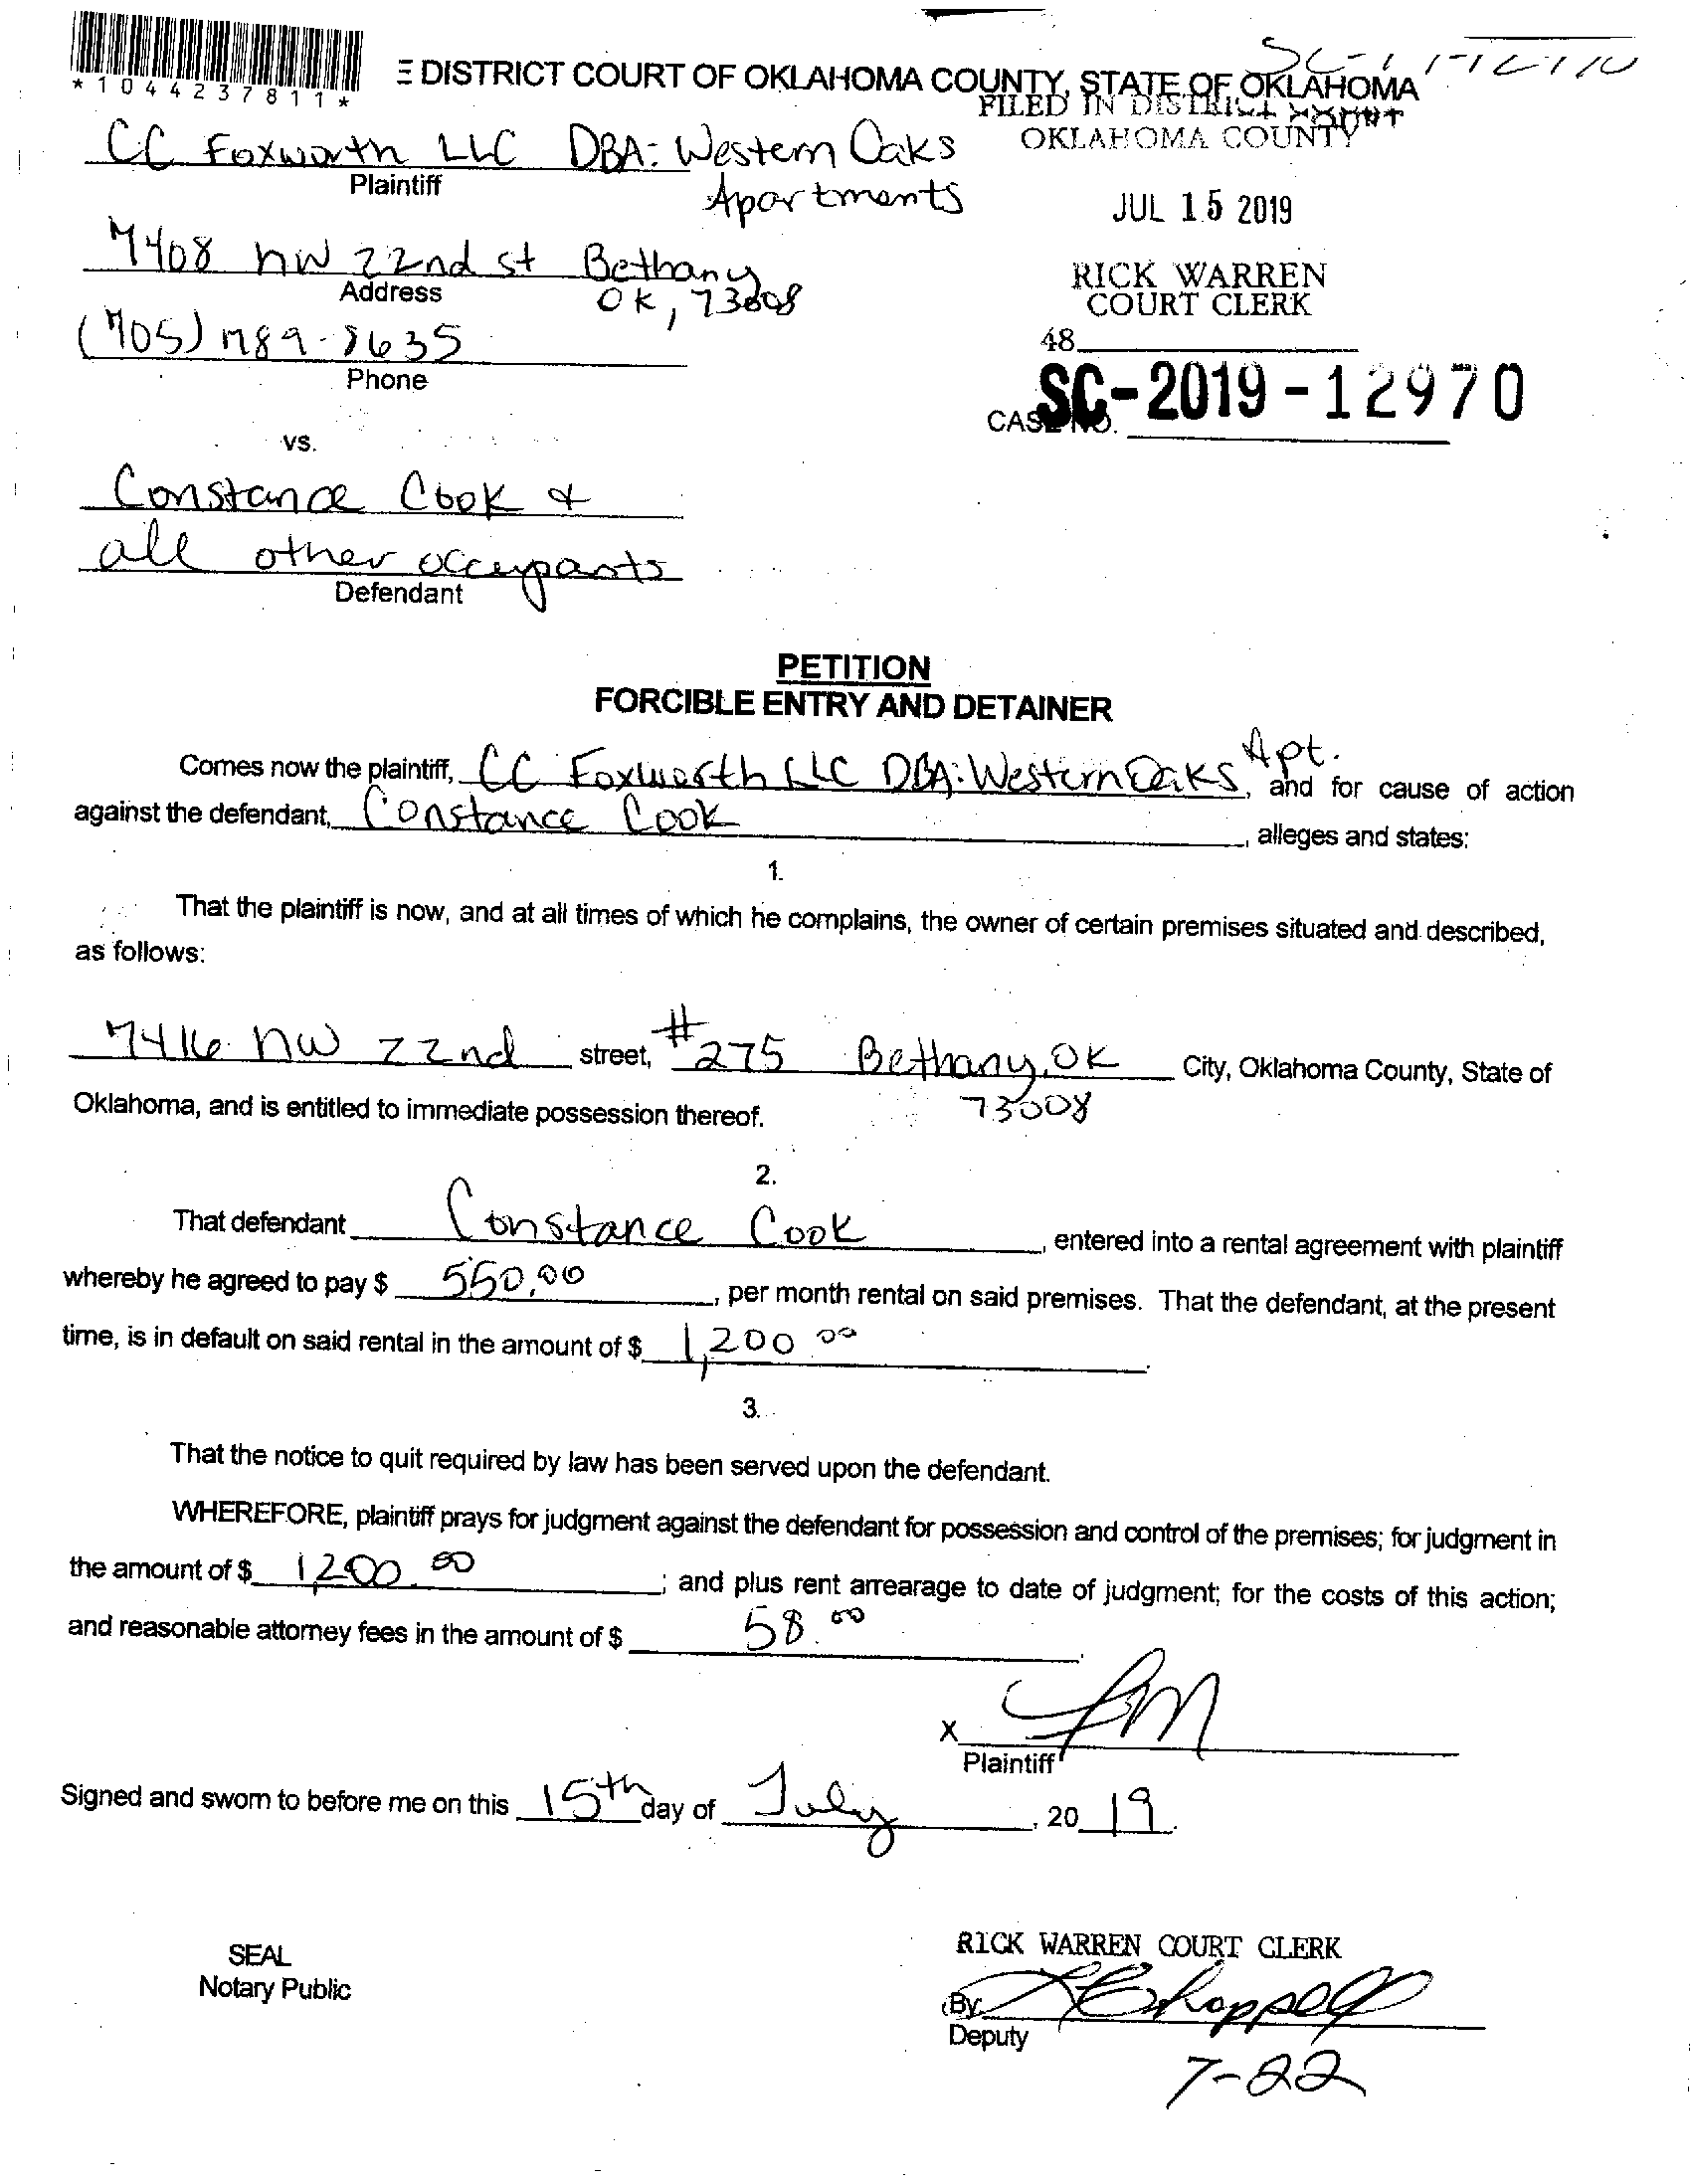 *1044237811*
E DISTRICT COURT OF OKLAHOMA COUNTY, STATE OF OKLAHOMA
FILED IN DISTRICT COURT
OKLAHOMA COUNTY
CC Foxworth LLC DBA: Western Oaks
Plaintiff
Apartments
JUL 15 2019
7408 NW 22nd st Bethany
Address
OK, 73008
RICK WARREN
COURT CLERK
48
Phone
CASE NO. SC-2019-12970
vs.
Constance Cook &
all other occupants
Defendant
PETITION
FORCIBLE ENTRY AND DETAINER
Comes now the plaintiff, CC Foxworth LLC DBA: Western Oaks Apt., and for cause of action
against the defendant, Constance Cook, alleges and states:
1.
That the plaintiff is now, and at all times of which he complains, the owner of certain premises situated and described,
as follows:
7416 NW 22nd street, #275 Bethany, OK City, Oklahoma County, State of
73008
Oklahoma, and is entitled to immediate possession thereof.
2.
That defendant Constance Cook, entered into a rental agreement with plaintiff
whereby he agreed to pay $ 550.00, per month rental on said premises. That the defendant, at the present
time, is in default on said rental in the amount of $ 1,200 00.
3.
That the notice to quit required by law has been served upon the defendant.
WHEREFORE, plaintiff prays for judgment against the defendant for possession and control of the premises; for judgment in
the amount of $ 1,200.00; and plus rent arrearage to date of judgment; for the costs of this action;
and reasonable attorney fees in the amount of $ 58.00.
X
Plaintiff
Signed and sworn to before me on this 15th day of July, 2019.
SEAL
Notary Public
RICK WARREN COURT CLERK
By
Deputy
7-22